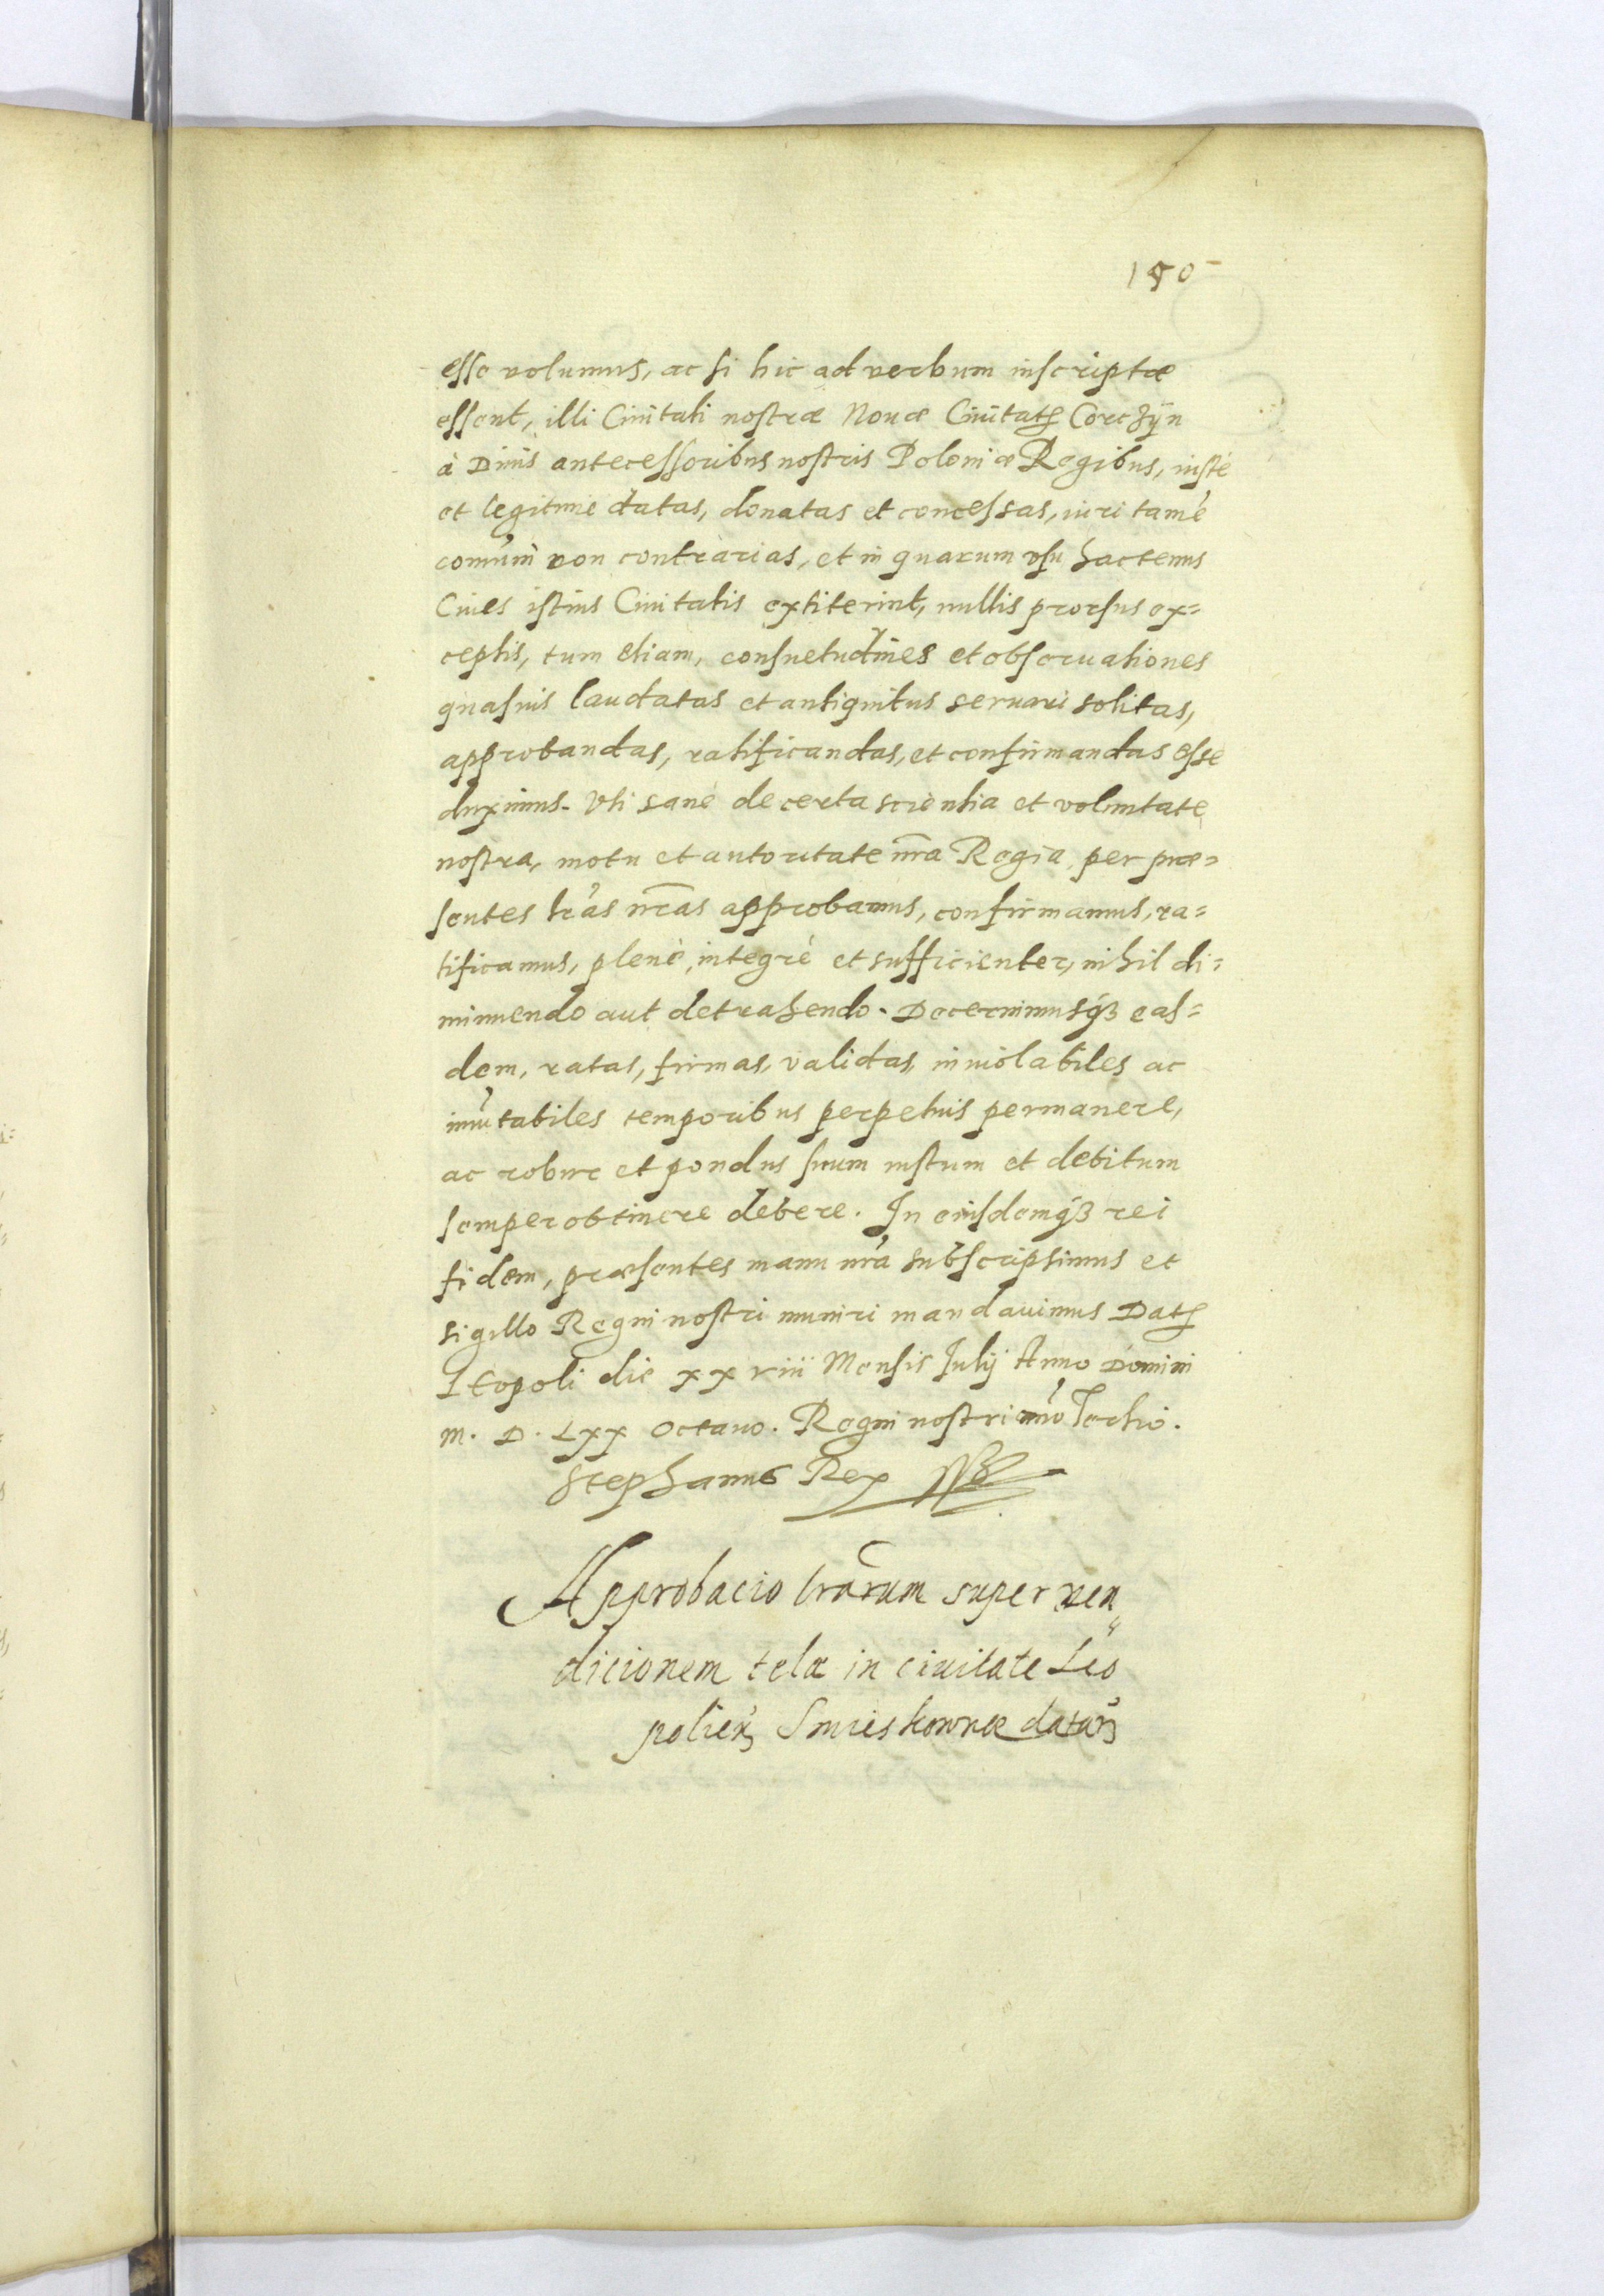 150
esse volumus, ac si hic ad verbum inscriptæ
essent, illi Ciuitati nostræ Nouæ Ciuitatꝭ Corczÿn
à Diuis antecessoribus nostris Poloniæ Regibus, iustè
et legitimè datas, donatas et concessas, iuri tamē
comūni non contrarias, et in quarum vsu hactenus
Ciues istius Ciuitatis extiterint, nullis prorsus ex=
ceptis, tum etiam, consuetudines et obseruationes
quasuis laudatas et antiquitus seruari solitas,
approbandas, ratificandas, et confirmandas esse
duximus. Vti sanè de certa scientia et voluntate
nostra, motu et autoritate nr̄a Regia per præ=
sentes lr̄as nr̄as approbamus, confirmamus, ra=
tificamus, plenè, integrè et sufficienter, nihil di=
minuendo aut detrahendo. Decernimusqꝫ eas=
dem, ratas, firmas, validas, inuiolabiles ac
im̄utabiles temporibus perpetuis permanere,
ac robur et pondus suum iustum et debitum
semper obtinere debere. In eiusdemqꝫ rei
fidem, præsentes manu nr̄a subscripsimus et
sigillo Regni nostri muniri mandauimus Datꝭ
Leopoli die xxviii Mensis Julij Anno Domini
M. D. Lxx octauo. Regni nostri Tertio.
Stephanus Rex
Approbacio lr̄arum super ven„
dicionem telæ in ciuitate Leo
polien̄ Smieskownæ datarꝫ